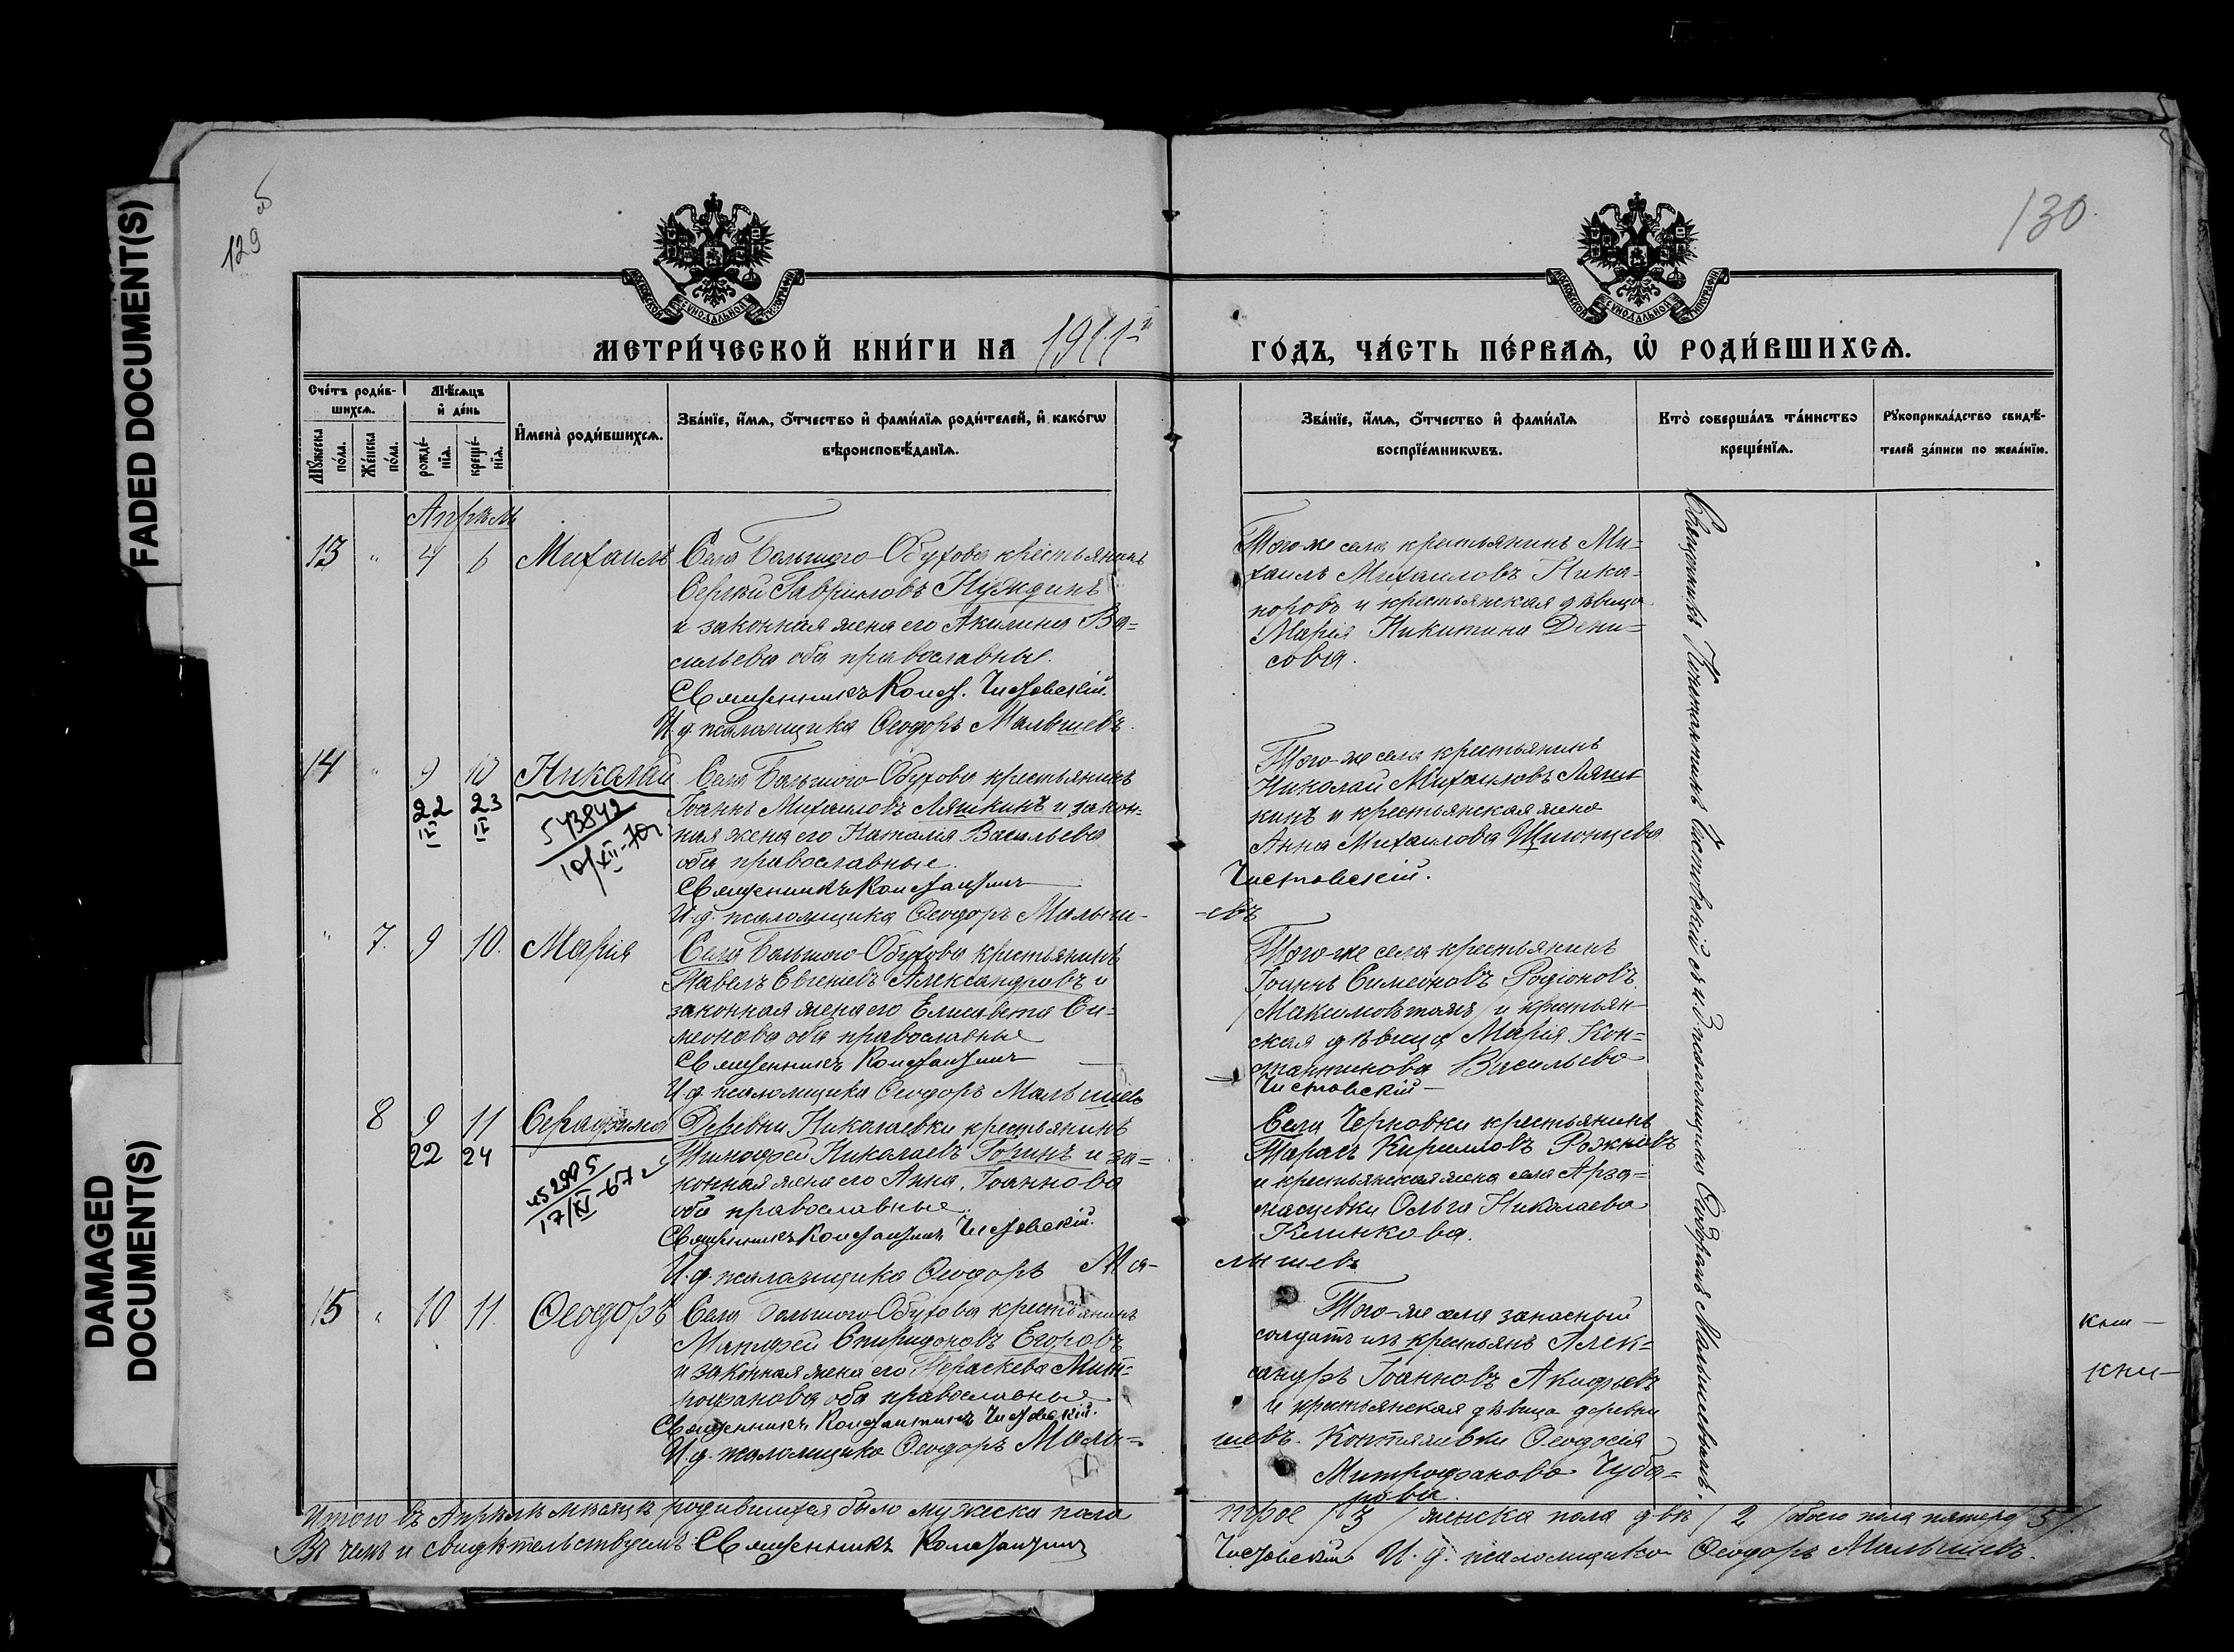 FADED DOCUMENT(S)
DAMAGED
DOCUMENT(S)
129 об
130
МОСКОВСКОЙ СѴНОДАЛЬНОЙ ТИПОГРАФІИ
МОСКОВСКОЙ СѴНОДАЛЬНОЙ ТИПОГРАФІИ
МЕТРИ́ЧЕСКОЙ КНИ́ГИ НА 1911й ГО́ДЪ, ЧА́СТЬ ПЕ́РВАѦ, Ѡ҆ РОДИ́ВШИХСѦ.
Сче́тъ роди́в-
шихсѧ.
Мꙋ́жеска
по́ла.
Же́нска
по́ла.
Мѣ́сѧцъ
и҆ де́нь
рожде́-
нїѧ.
креще́-
нїѧ.
И҆мена̀ роди́вшихсѧ.
Зва́нїе, и҆́мѧ, ѻ҆́тчество и҆ фами́лїѧ роди́телей, и҆ како́гѡ
вѣроисповѣ́данїѧ.
Зва́нїе, и҆́мѧ, ѻ҆́тчество и҆ фами́лїѧ
воспрїе́мникѡвъ.
Кто̀ соверша́лъ та́инство
креще́нїѧ.
Рꙋкоприкла́дство свидѣ́-
телей за́писи по жела́нїю.
Апрѣль
13 " 4 6 Михаилъ
Села Большого-Обухова крестьянинъ
Сергѣй Гавриловъ Нуждинъ
и законная жена его Акилина Ва=
сильева оба православные.
Священникъ Конст. Чистовскій.
И.д. псаломщика Ѳеодоръ Малышевъ.
Того-же села крестьянинъ Ми=
хаилъ Михаиловъ Ника-
норовъ и крестьянская дѣвица
Марія Никитина Дени=
сова.
14 " 9 10 Николай
22 23
IV IV
543842
10/XII-70г
Села Большого-Обухова крестьянинъ
Іоаннъ Михаиловъ Ляшкинъ и закон-
ная жена его Наталія Васильева
оба православные.
Священникъ Константинъ Чистовскій.
И.д. псаломщика Ѳеодоръ Малыш-
-евъ
Того-же села крестьянинъ
Николай Михаиловъ Ляш-
кинъ и крестьянская жена
Анна Михаилова
" 7. 9 10. Марія
Села Большого-Обухова крестьянинъ
Павелъ Евгеніевъ Александровъ и
законная жена его Елисавета Си-
меонова оба православные
Священникъ Константинъ Чистовскій
И.д. псаломщика Ѳеодоръ Малышевъ
Того-же села крестьянинъ
Іоаннъ Симеоновъ Родіоновъ
и крестьян-
ская дѣвица Марія Кон=
стантинова Васильева
8 9 11 Серафима
22 24
17/XI-67г
Деревни Николаевки крестьянинъ
Тимофей Николаевъ Горинъ и за=
конная жена его Анна Іоаннова
оба православные.
Священникъ Константинъ Чистовскій.
И.д. псаломщика Ѳеодоръ Ма-
лышевъ
Села Черновки крестьянинъ
Тарасъ Кирилловъ Рожновъ
и крестьянская жена села Арза=
масцевки Ольга Николаева
Клинкова.
15 " 10 11. Ѳеодоръ
Села Большого-Обухова крестьянинъ
Матѳей Спиридоновъ Егоровъ
и законная жена его Параскева Мит=
рофанова оба православные
Священникъ Константинъ Чистовскій.
И.д. псаломщика Ѳеодоръ Малы=
шевъ.
Того-же села запасный
солдатъ изъ крестьянъ Алек=
сандръ Іоанновъ Акифьевъ
и крестьянская дѣвица деревни
Ѳеодосія
Митрофанова Чуба=
рова.
Священникъ Константинъ Чистовскій съ и.д. псаломщика Ѳеодоромъ Малышевымъ.
Итого въ Апрѣлѣ мѣсяцѣ родившихся было мужеска пола трое /3/ женска пола двѣ /2/ обоего пола пятеро /5/.
Въ чемъ и свидѣтельствуемъ: Священникъ Константинъ Чистовскій И.д. псаломщика Ѳеодоръ Малышевъ.